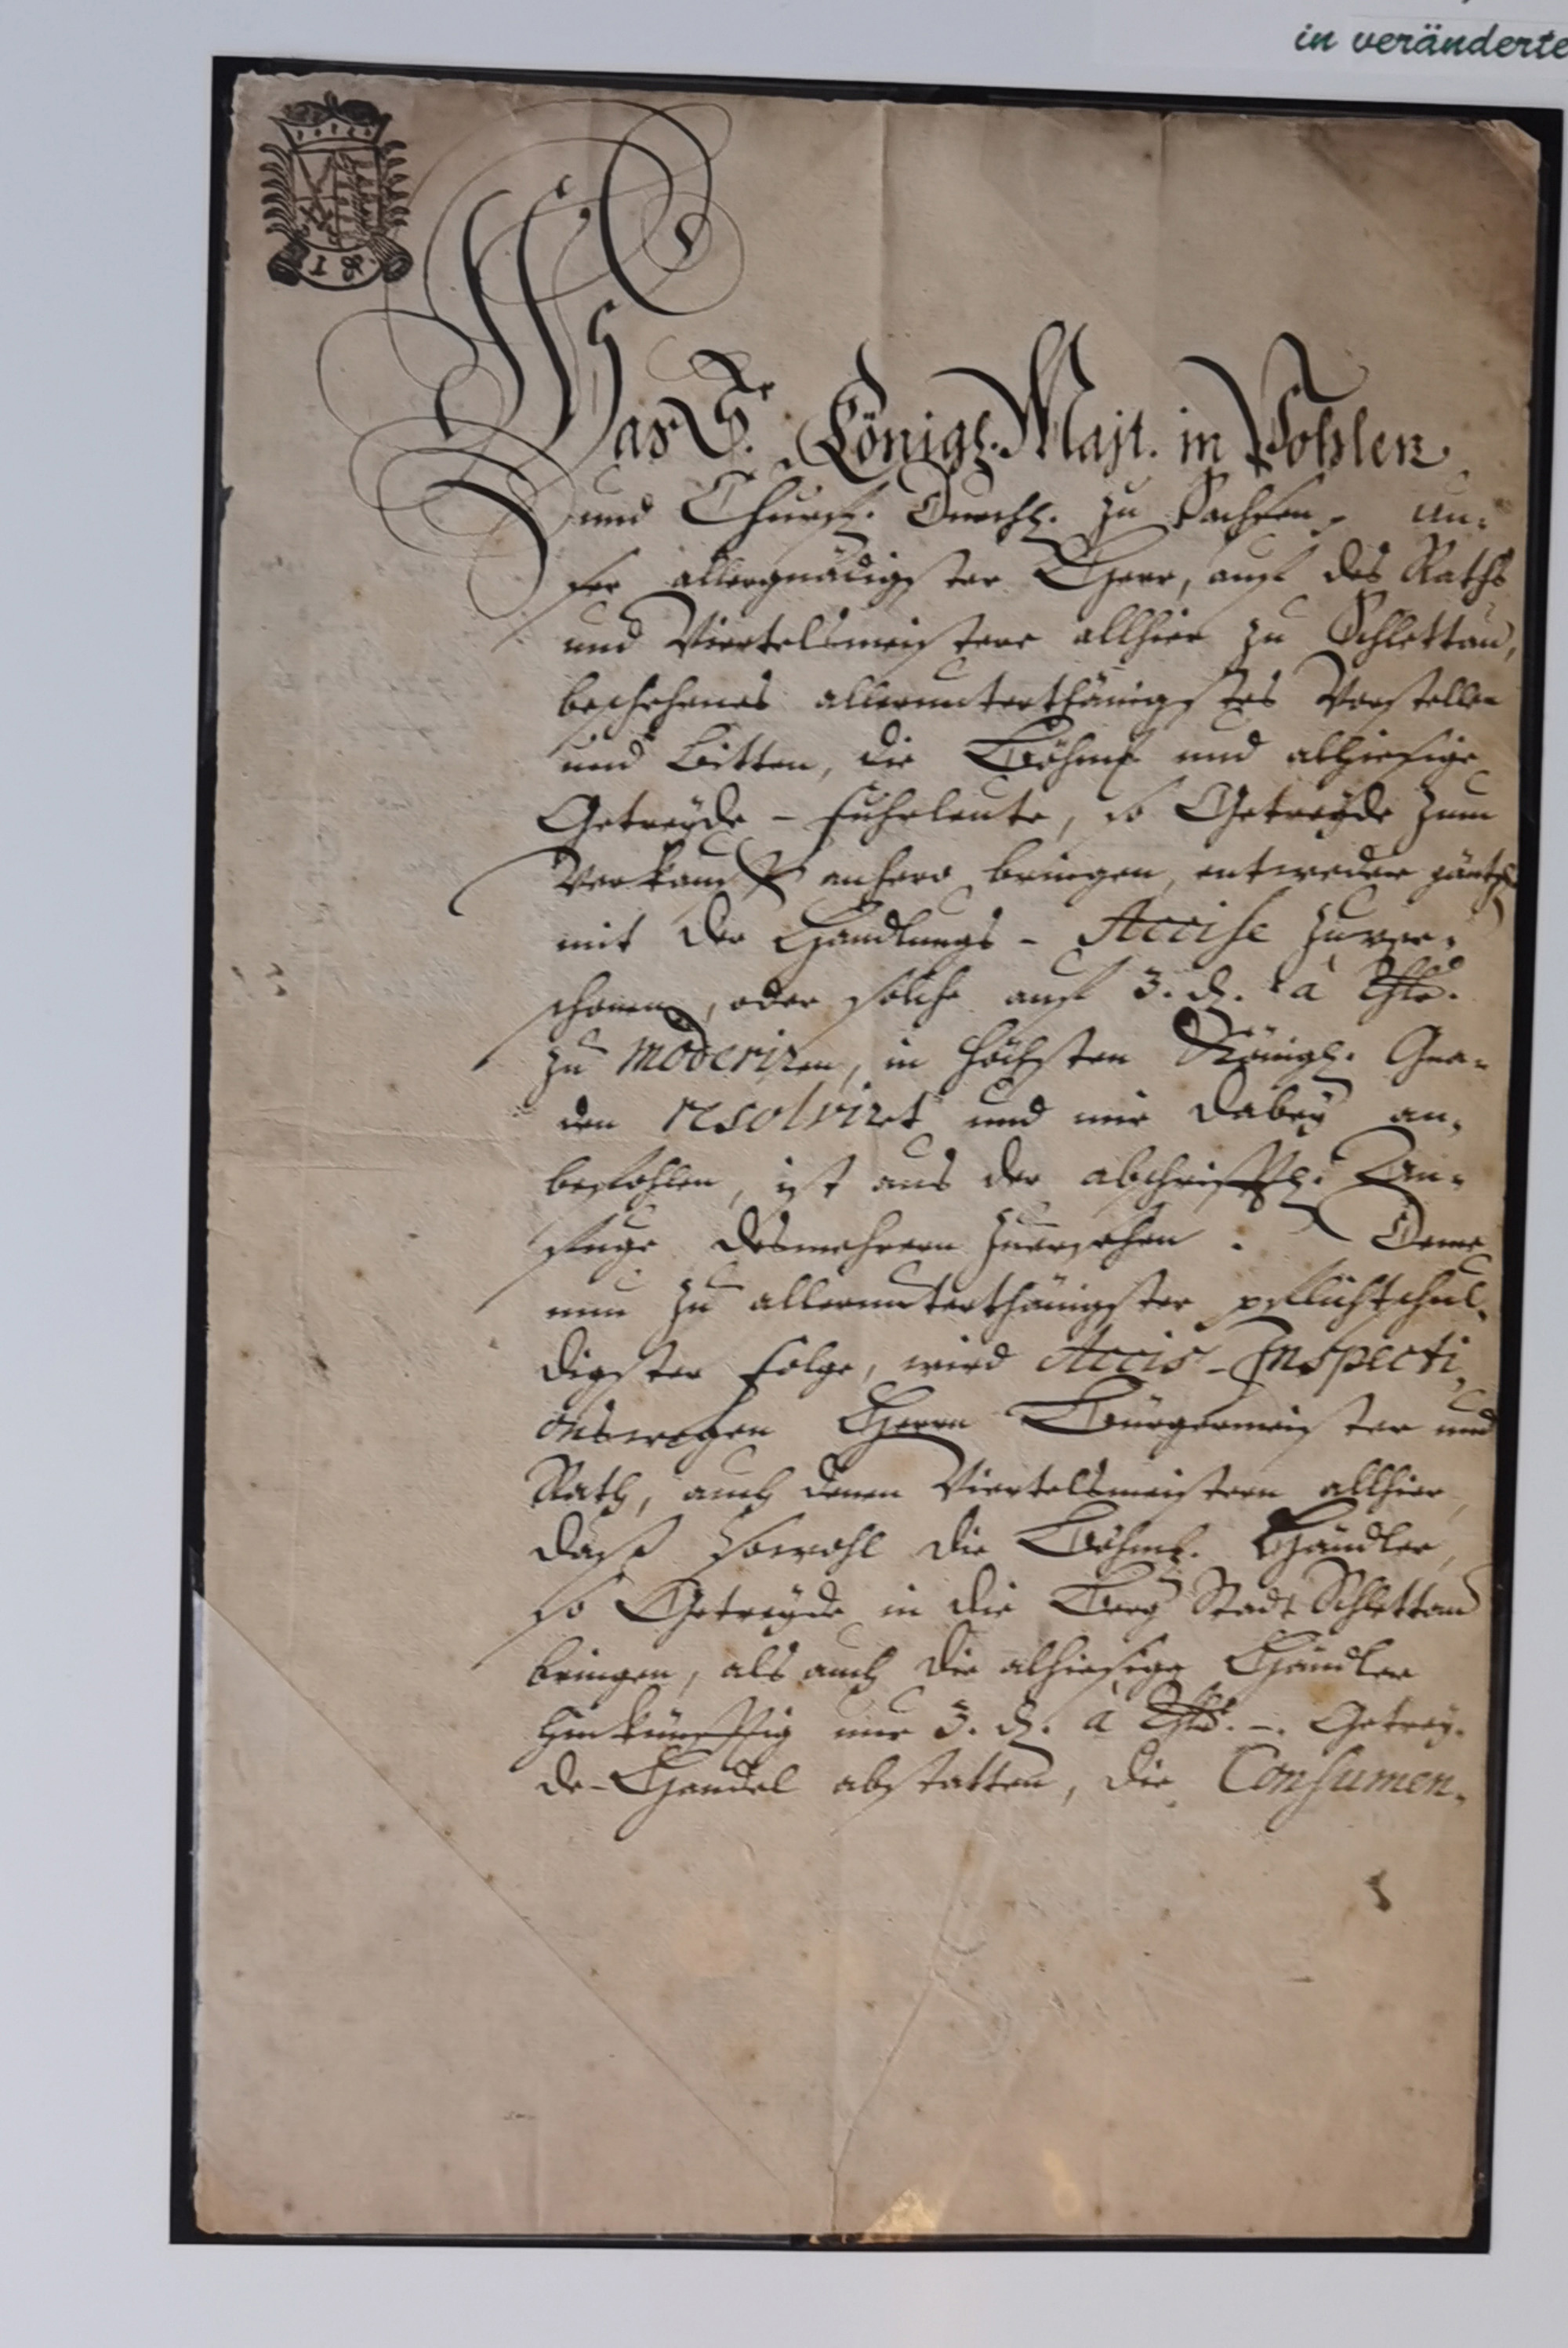 in veränderte
1 &.
Was Sr. Königl. Majt. in Pohlen
und Churf. Durchl. zu Sachsen, un-
ser allergnädigster Herr, auf des Raths
und Viertelsmeistere allhier zu Schlettau,
beschehenes allerunterthänigstes Vorstellen
und Bitten, die Böhm. und alhiesige
Getreyde-Fuhrleute, so Getreyde zum
Verkauff anhero bringen, entweder gäntzl.
mit der Handlungs-Accise zuver-
schonen, oder solche auf 3. d. à Thlr.
zu moderiren, in höchsten Königl. Gna-
den resolviret und mir dabey an-
befohlen, ist aus der abschrifftl. An-
fuge desmehrern zuersehen. Deme
nun zu allerunterthänigster pflichtschul-
digster Folge, wird Accis-Inspecti-
onswegen Herrn Bürgermeister und
Rath, auch denen Viertelsmeistern allhier,
daß sowohl die Böhm. Händler,
so Getreyde in die Berg Stadt Schlettau
bringen, als auch die alhiesige Händler
hinkünfftig nur 3. d. à Thlr. -. Getrey-
de-Handel abstatten, die Consumen-